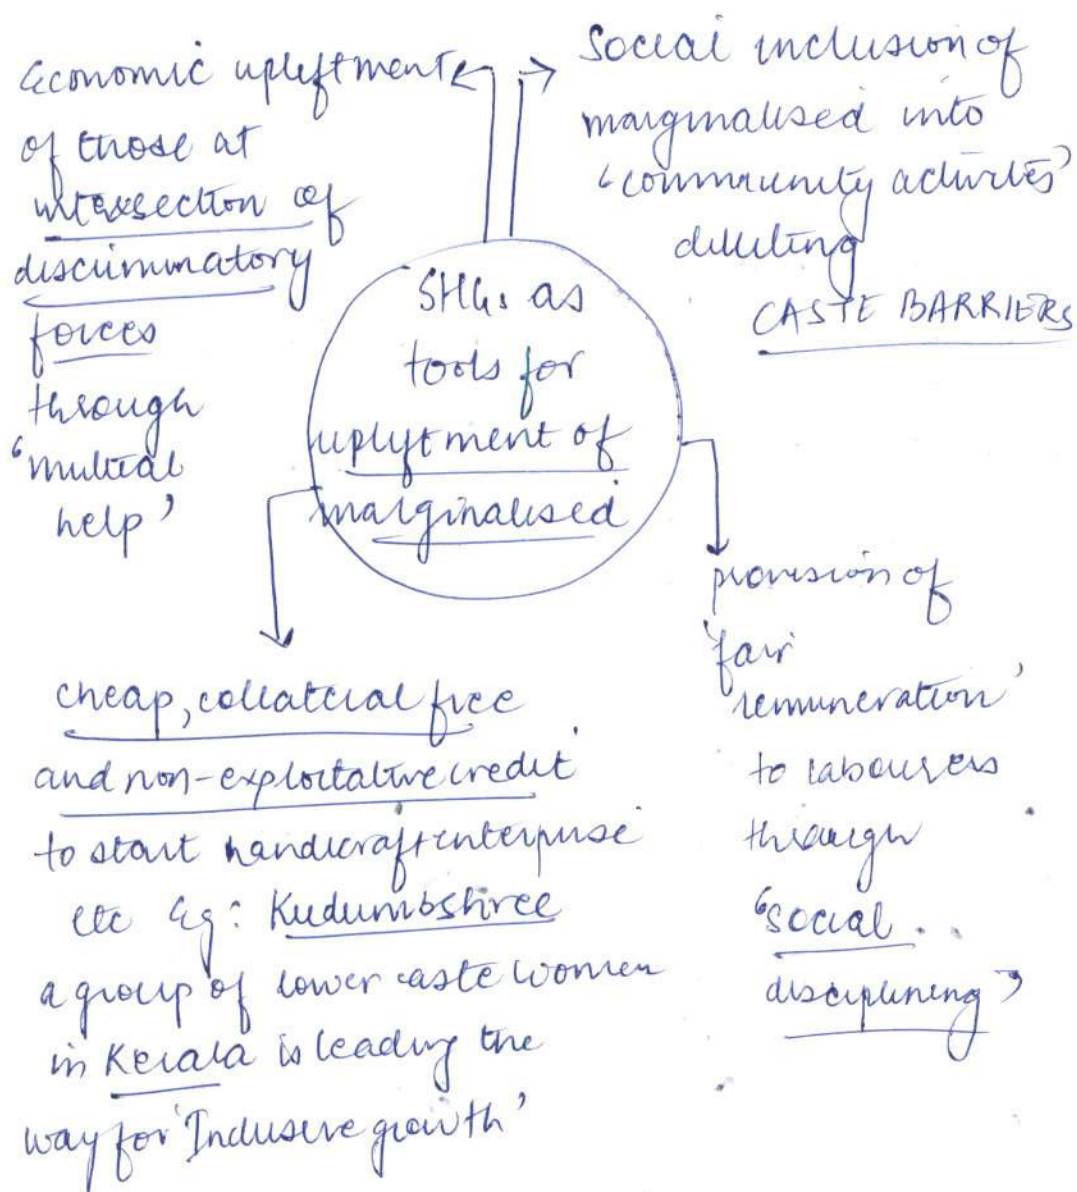 SHGs as
tools for
upliftment of
marginalised
Economic upliftment
of those at
intersection of
discriminatory
forces
through
'mutual
help'
Social inclusion of
marginalised into
'community activities'
diluting
CASTE BARRIERS
cheap, collateral free
and non-exploitative credit
to start handicraft enterprise
etc Eg: Kudumbshree
a group of lower caste women
in Kerala is leading the
way for 'Inclusive growth'
provision of
'fair
remuneration'
to labourers
through
'social
disciplining'